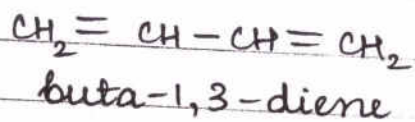 CH₂= CH-CH=CH₂
buta-1,3-diene